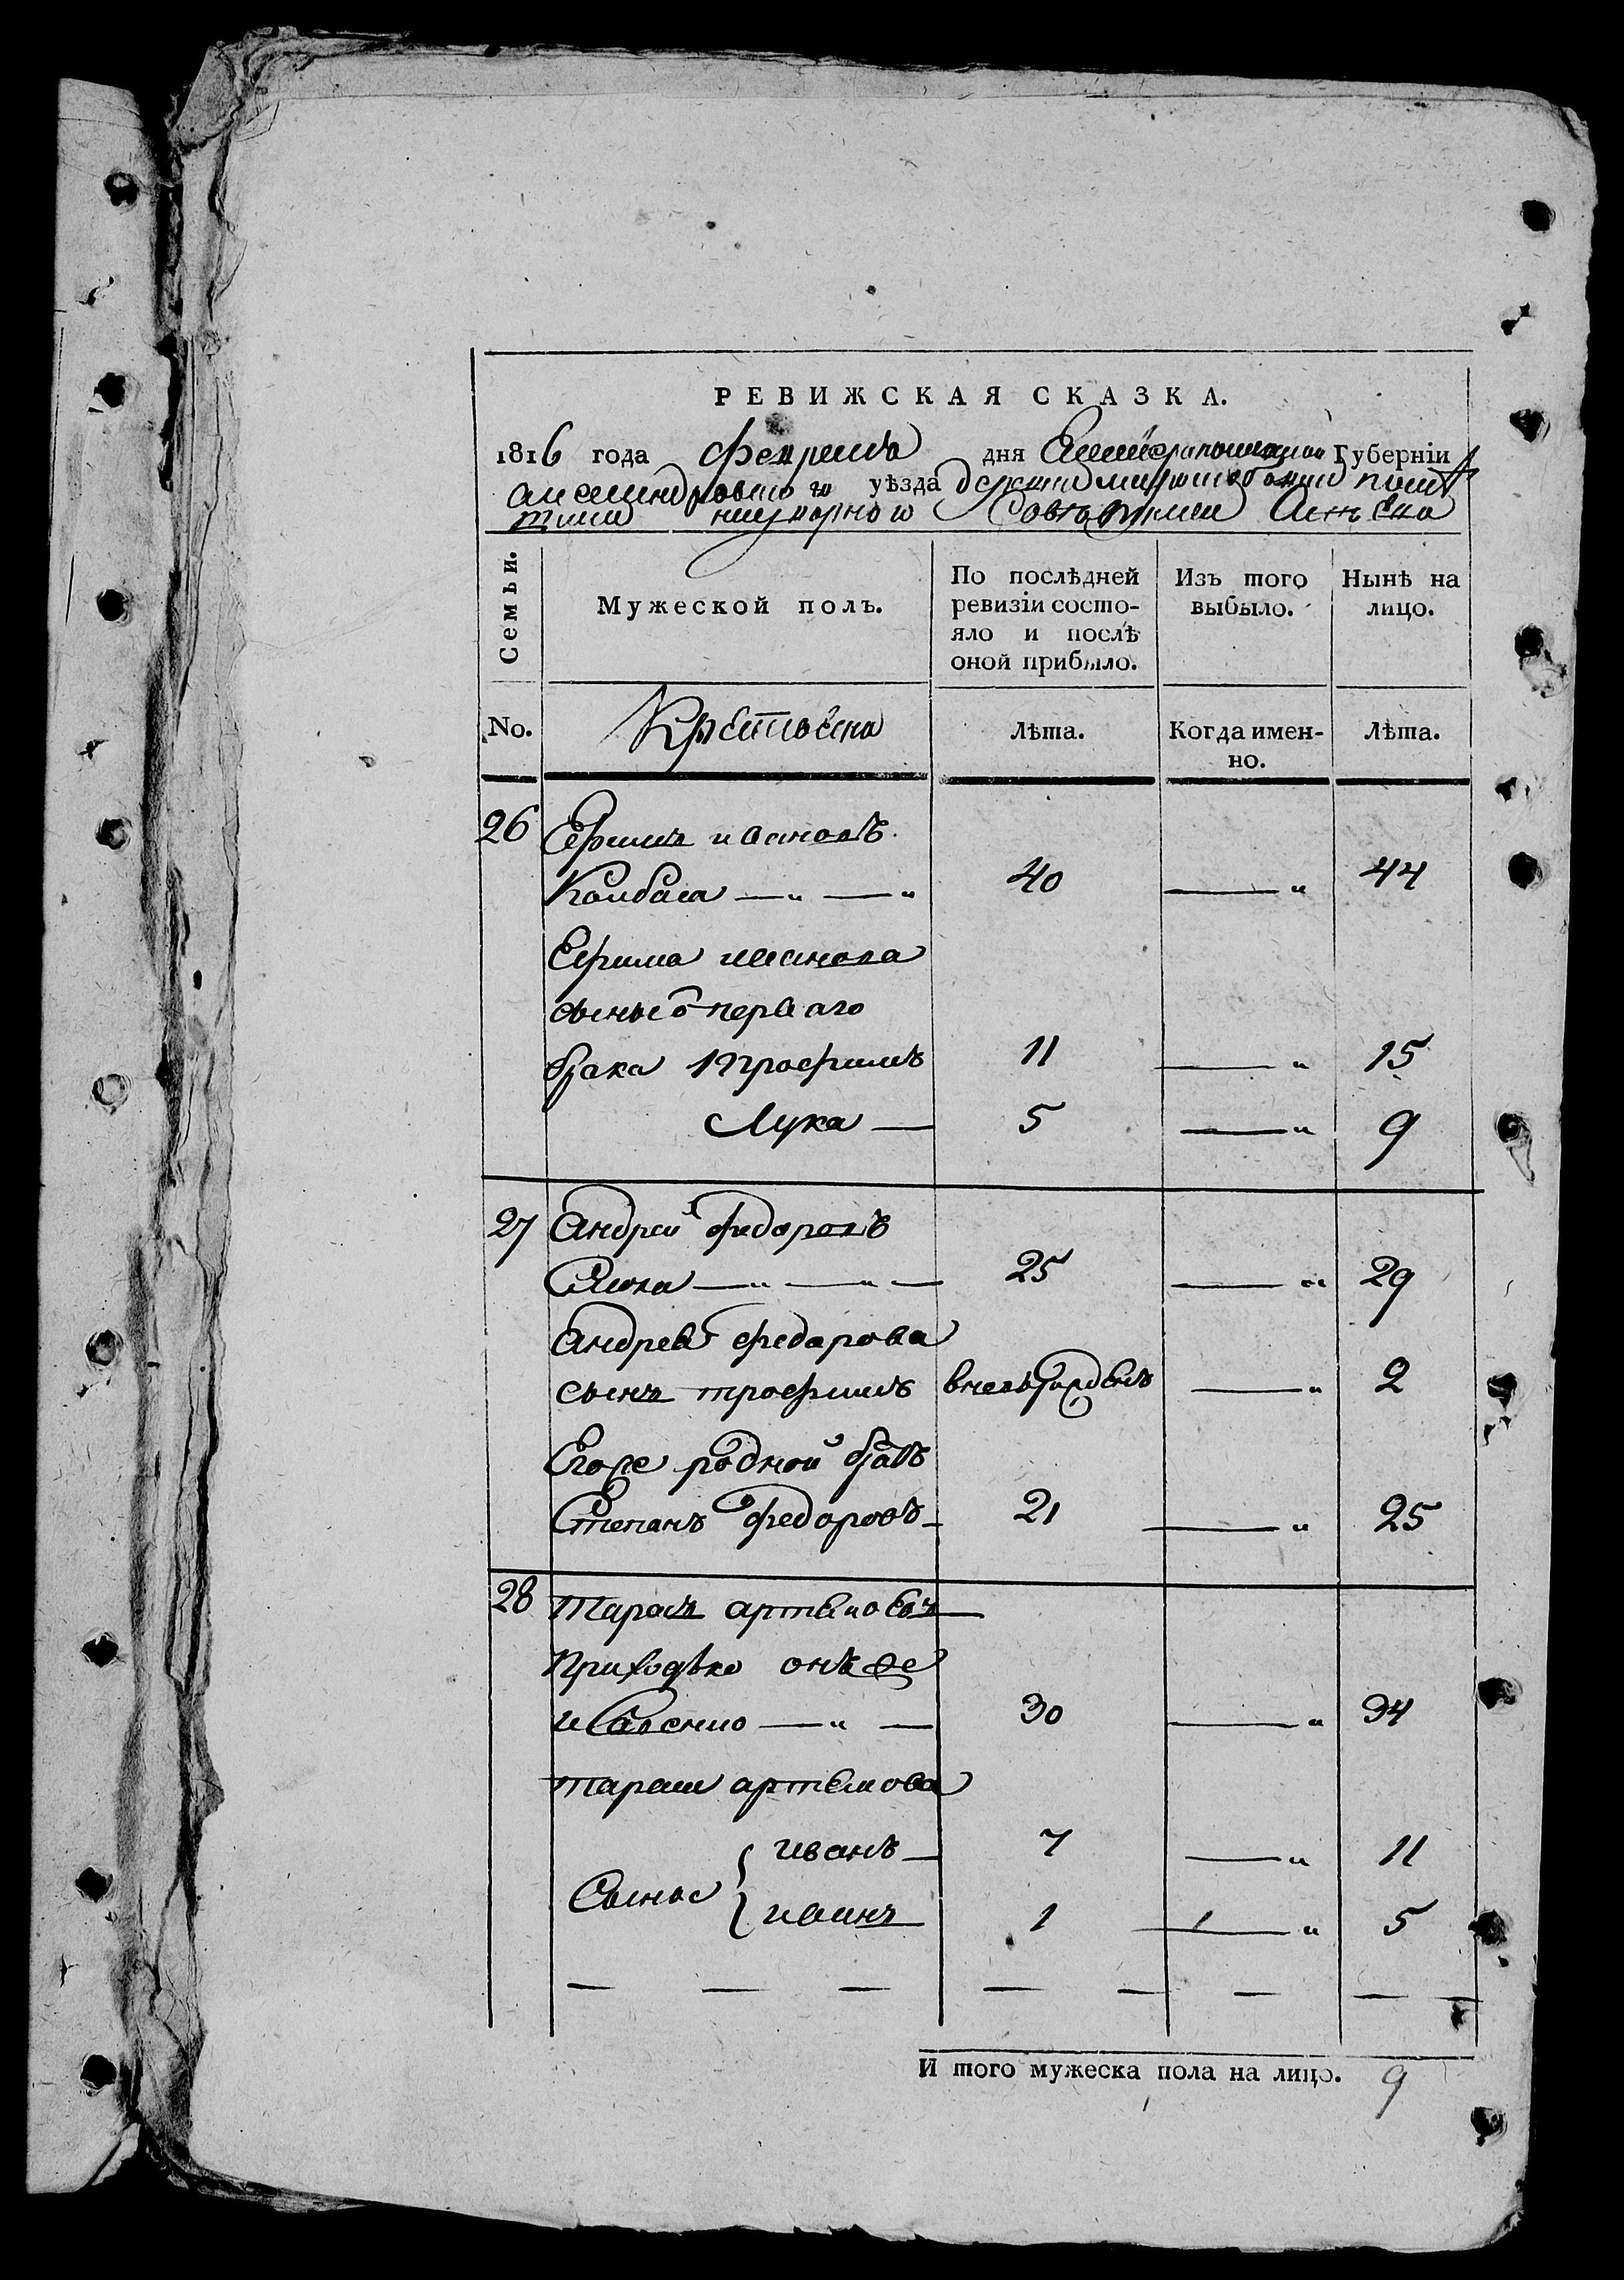 РЕВИЖСКАЯ СКАЗКА.
1816 года февраля дня Екатеринославской Губерніи
александровского уѣзда
надворного Совѣтника
Семьи.
Мужеской полъ.
По послѣдней ревизіи состо-
яло и послѣ
оной прибыло.
Изъ того
выбыло.
Нынѣ на
лицо.
No.
Крестьяна
Лѣта.
Когда имен-
но.
Лѣта.
26 Ефимъ ивановъ
Колбаса — " — " 40 — " 44
Ефима иванова
сыны о перваго
брака Трофимъ 11 — " 15
Лука — 5 — " 9
27 Андрей федоровъ
— " — " — 25 — " 29
Андрея федорова
сынъ трофимъ — " 2
Его же родной братъ
Степанъ федоровъ — 21 — " 25
28 Тарасъ артемовъ —
Приходько онъ же
— " — 30 — " 34
тараса артемова
Сыны { иванъ — 7 — " 11
иванъ 1 — " 5
— — — — — — — —
И того мужеска пола на лицо. 9